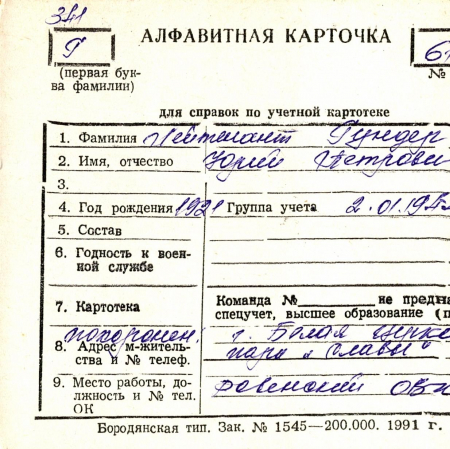 341
Г
АЛФАВИТНАЯ КАРТОЧКА
(первая бук-
ва фамилии)
№
для справок по учетной картотеке
1. Фамилия Лейтенант Гундер
2. Имя, отчество Юрий Петрови
3.
4. Год рождения 1921 Группа учета 2.01.19
5. Состав
6. Годность к воен-
ной службе
7. Картотека Команда № не предн
спецучет, высшее образование (п
похоронен г. Белая Церко
8. Адрес м-житель-
ства и № телеф. парк „Славы"
9. Место работы, до-
лжность и № тел.
ОК
Ровенский
Бородянская тип. Зак. № 1545—200.000. 1991 г.